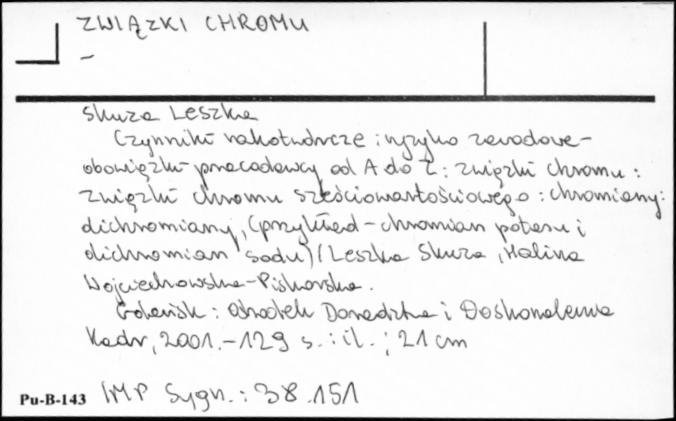 ZWIĄZKI CHROMU
–
Skuza Leszka
Czynniki rakotwórcze i ryzyko zawodowe -
obowiązki pracodawcy od A do Z : związki chromu :
związki chromu sześciowartościowego : chromiany :
dichromiany, (przykład - chromian potasu i
dichromian sodu) / Leszka Skuza, Halina
Wojciechowska-Piskorska.
Gdańsk : Ośrodek Doradztwa i Doskonalenia
Kadr, 2001. - 129 s. : il. ; 21 cm
Pu-B-143 IMP Sygn. : 38.151